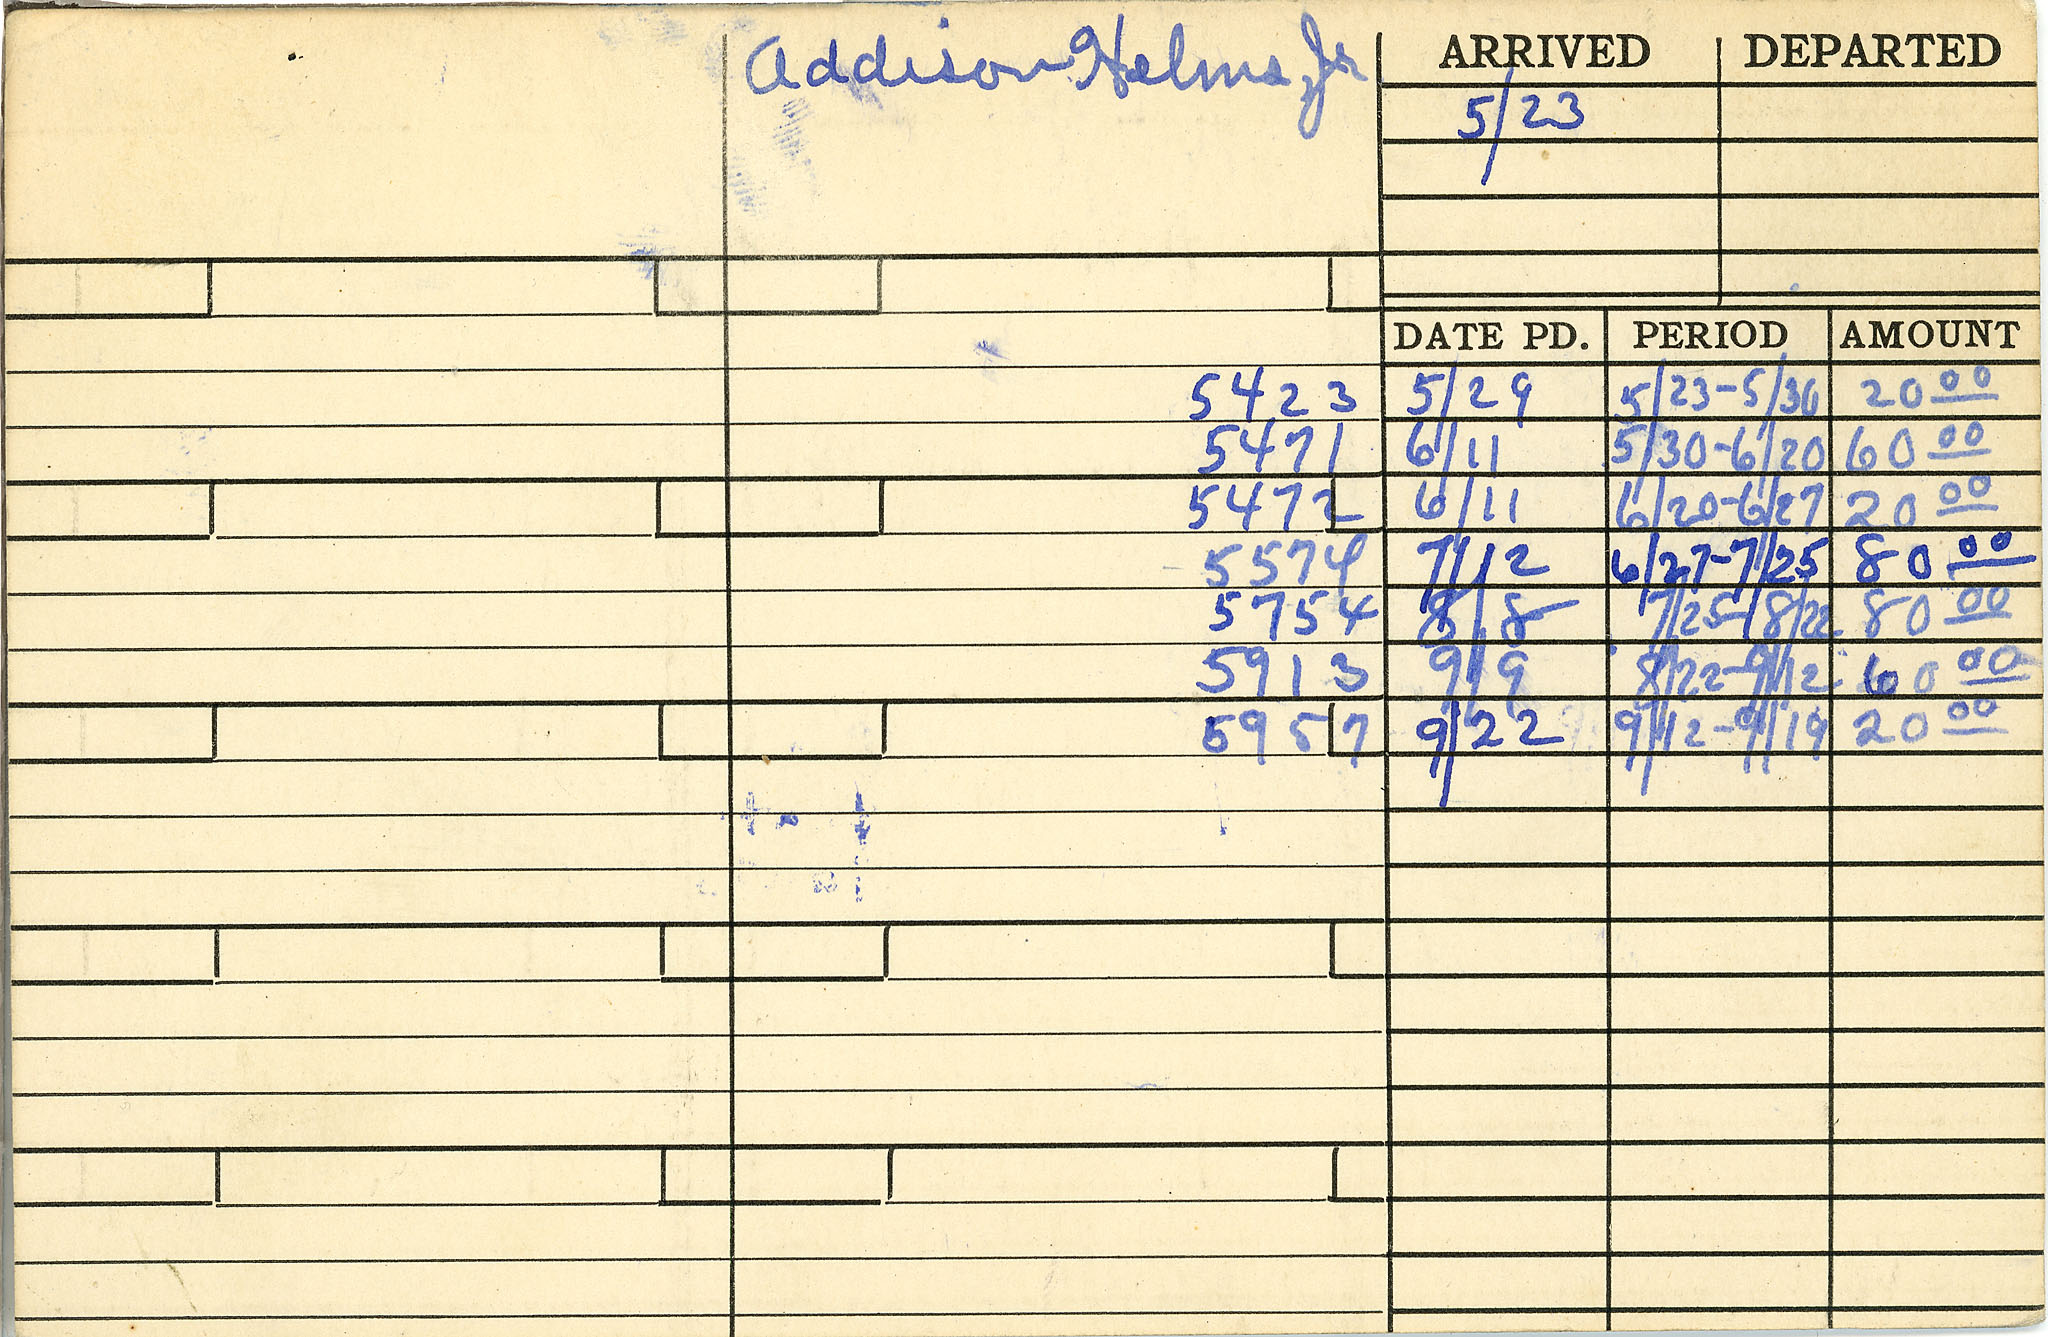 Addison Helms Jr ARRIVED DEPARTED
5/23
DATE PD. PERIOD AMOUNT
5423 5/29 5/23-5/30 20 00
5471 6/11 5/30-6/20 60 00
5472 6/11 6/20-6/27 20 00
5574 7/12 6/27-7/25 80 00
5754 8/8 7/25-8/22 80 00
5913 9/9 8/22-9/12 60 00
5957 9/22 9/12-9/19 20 00